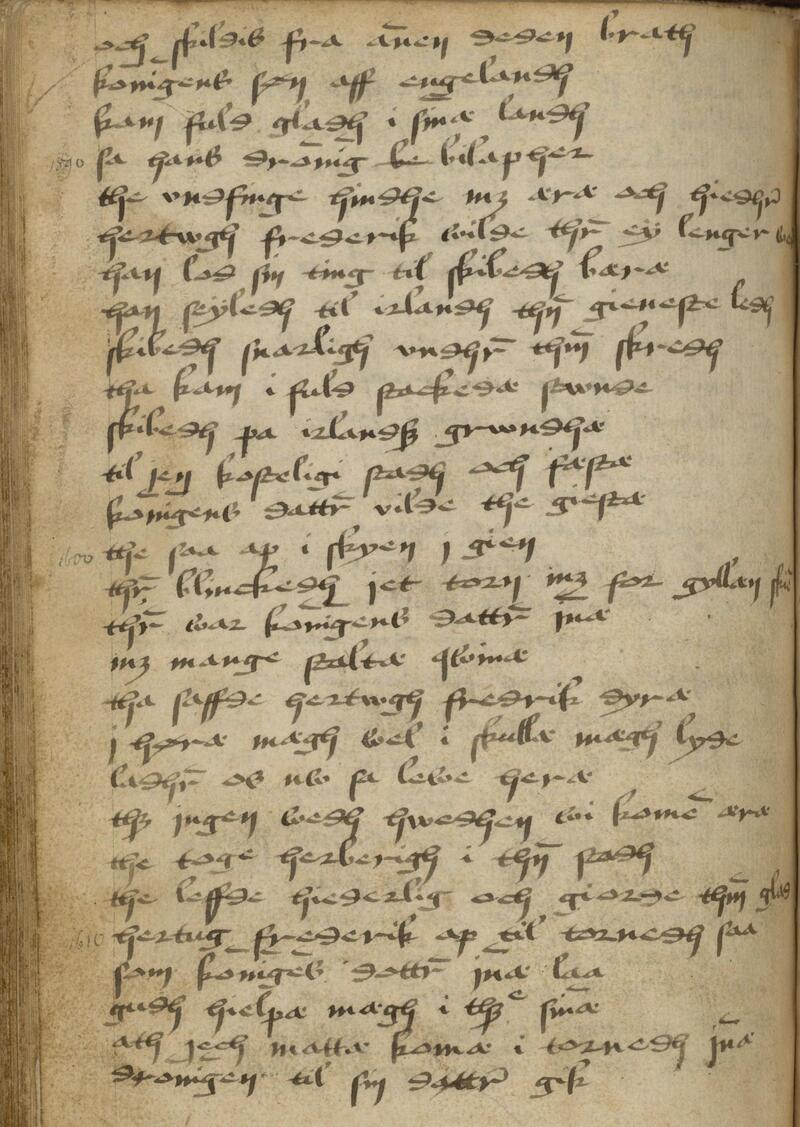 och skildis fra an̄en deden brath
konīgens søn aff engelandh
kam fuld gladh i sinæ landh
1590 sa hans dronīg be bilapher
the vndfinge hindhe mꝫ æræ och hiedhr̄
hertwgh frederik wilde thr̄ ey lenger
han lod sin ting til skibedh bæræ
han seyledh til irlandh thn̄ gieneste ledh
skibedh snarligh vndhr̄ thm̄ skredh
tha kam i fuld stackedæ stwnde
skibedh pa irlandꝭ grwndhæ
til jen kosteligi stadh och fæstæ
konīgens dattr̄ vilde the giestæ
1600 the saa ap i skyen j gien
thr̄ blinckedh jet torn mꝫ for gyllæn
thr̄ war konīgens dattr̄ jn̄æ
mꝫ mange staltæ qwinæ
tha saffde hertwgh fredrik dyræ
j høræ mægh wel i skullæ mægh lyde
ladhr̄ os nw sa lewe heræ
thꝭ jngen wedh hwedhen wi komē æræ
the toge herberigh i thn̄ stadh
the leffde hiederlig och giorde thm̄ glad
1610 hertug frederik ap til tornedh saa
som konīgēs dottr̄ jn̄æ laa
gudh hielpæ mægh i thꝭ sin̄æ
ath jech mattæ komæ i tornedh jn̄æ
dronīgen til sin dattr̄ gik